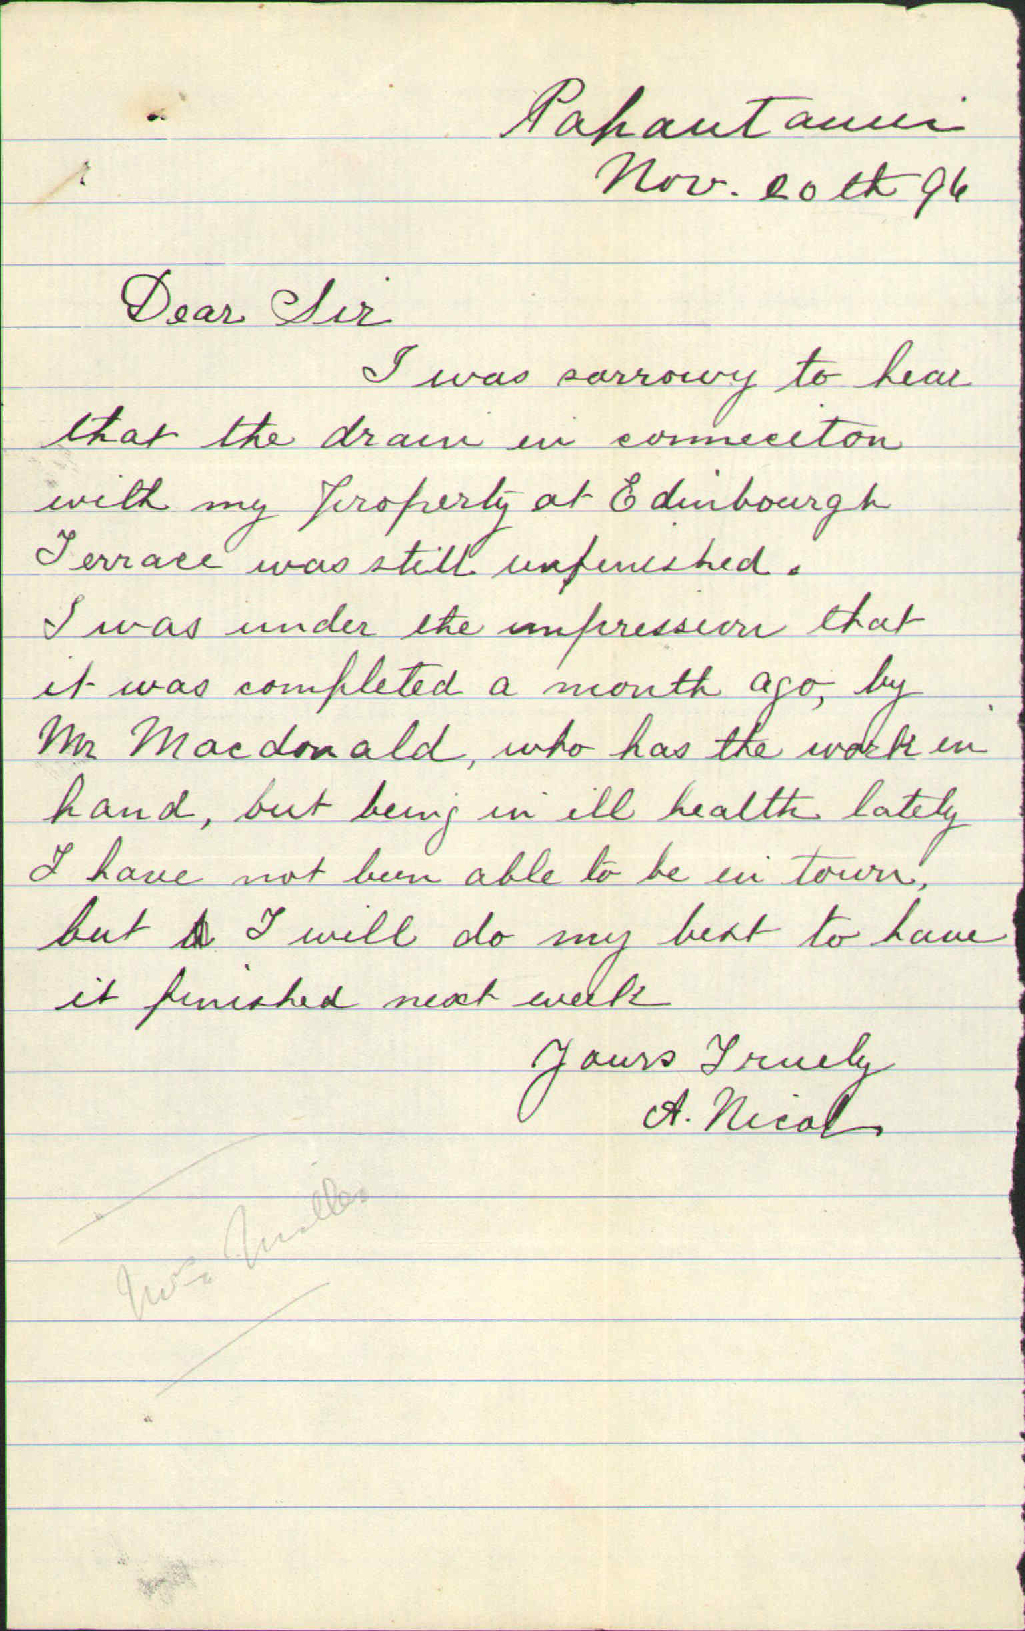 Pahautanui
Nov. 20th 96
Dear Sir
I was sorrowy to hear
that the drain in conneciton
with my Property at Edinbourgh
Terrace was still unfinished.
I was under the impression that
it was completed a month ago, by
Mr Macdonald, who has the work in
hand, but being in ill health lately
I have not been able to be in town,
but I will do my best to have
it finished next week
Yours Truely
A. Nicol